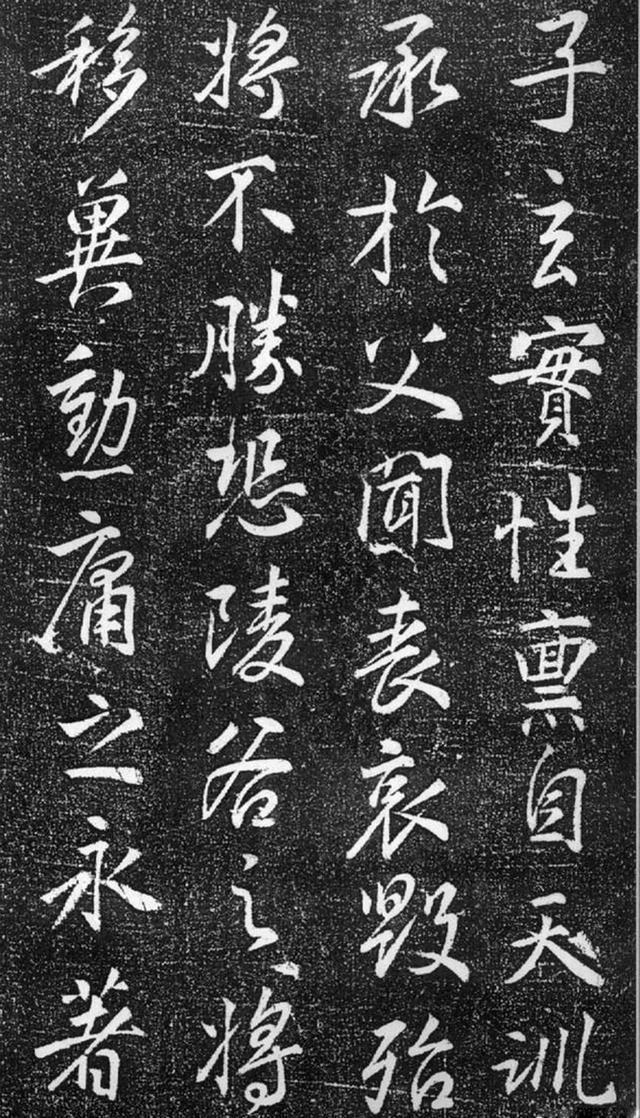 子玄實性禀自天訓
承於父聞喪哀毀殆
將不勝恐陵谷之將
移兾勳庸之永著